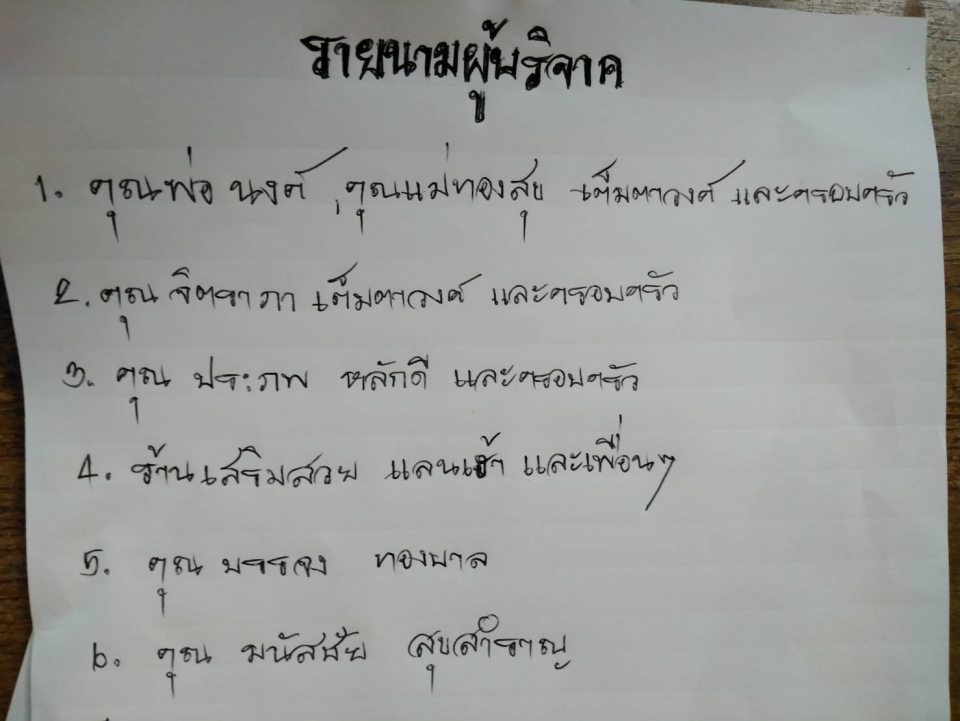 รายนามผู้บริจาค
1. คุณพ่อ นงค์ , คุณแม่ทองสุข เต็มตาวงศ์ และครอบครัว
2. คุณ จิตราภา เต็มตาวงศ์ และครอบครัว
3. คุณ ประภพ หลักดี และครอบครัว
4. ร้านเสริมสวย แลนเจ้า และเพื่อนๆ
5. คุณ บรรจง ทองบาล
6. คุณ มนัสชัย สุขสำราญ